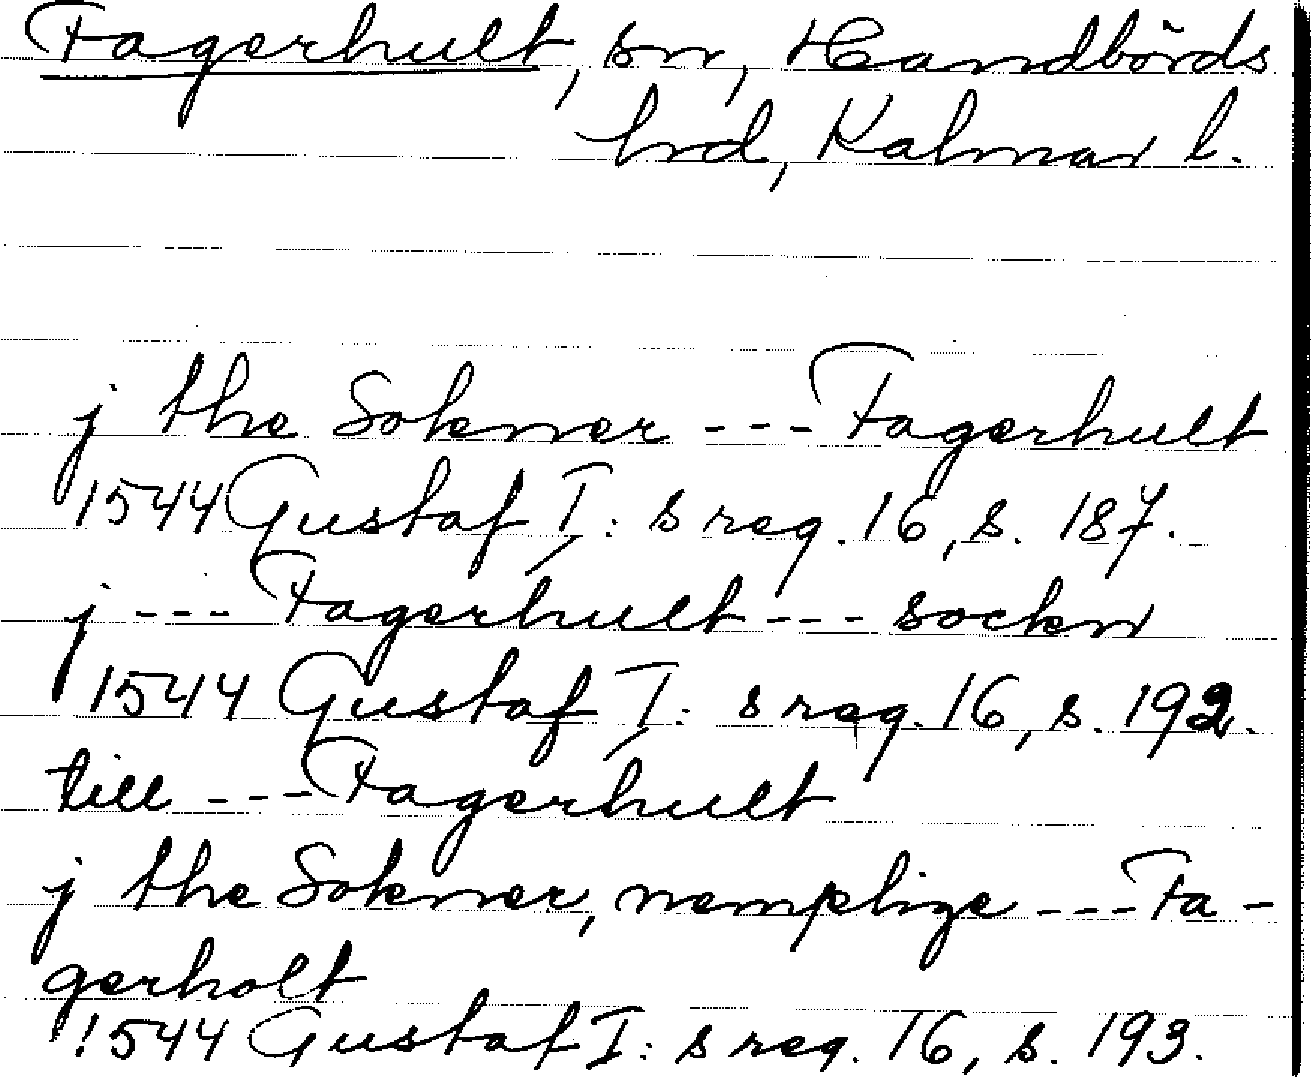 Fagerhult, sn, Handbörds
hrd, Kalmar l.
j the Sokner --- Fagerhult
1544 Gustaf I: s reg. 16, s. 187.
j --- Fagerhult --- sockn
1544 Gustaf I: s reg. 16, s. 192.
till --- Fagerhult
j the Sokner, nemplige --- Fa-
gerholt
1544 Gustaf I: s reg. 16, s. 193.